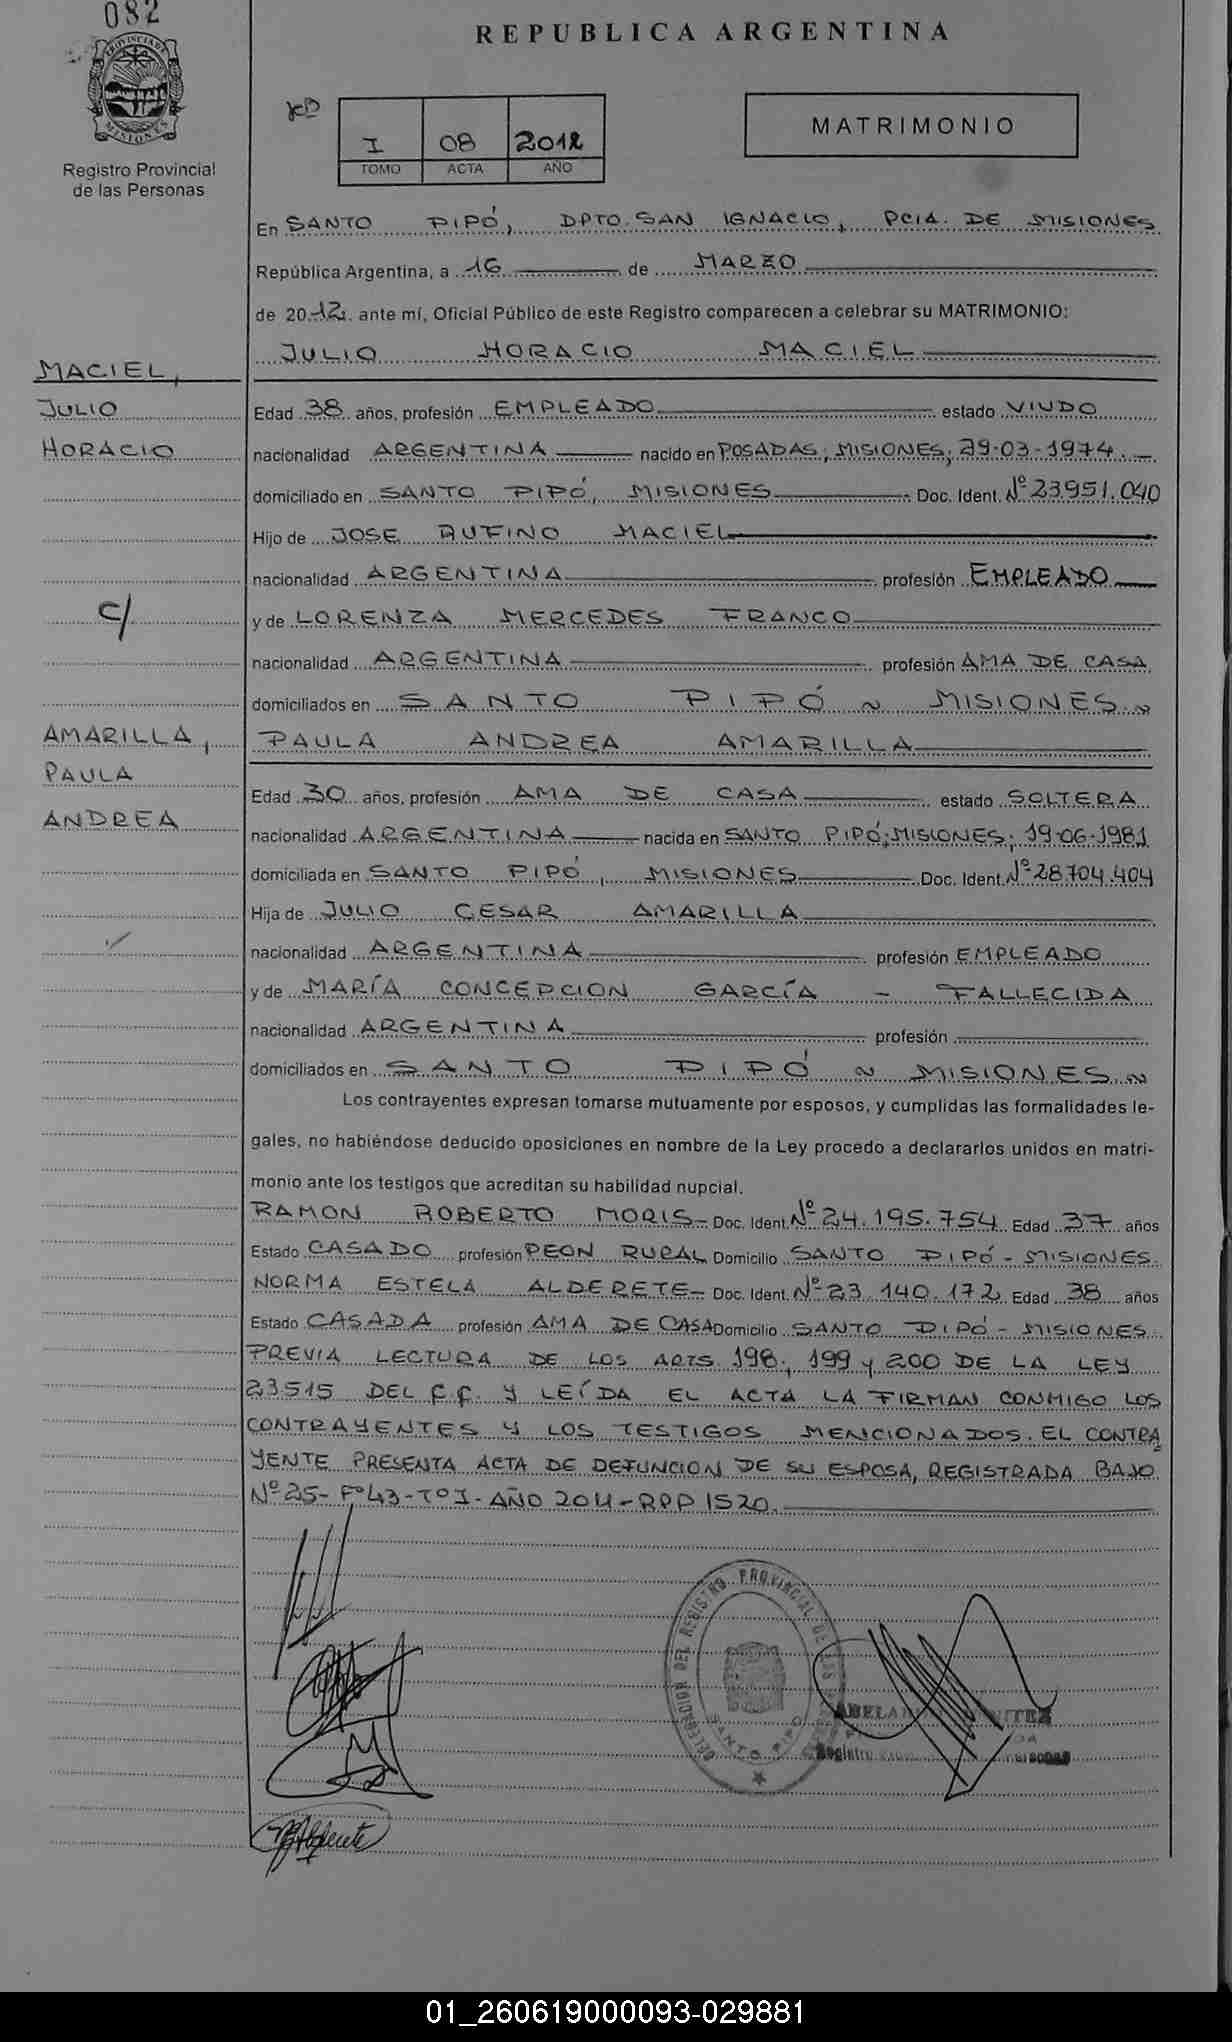 082
REPUBLICA ARGENTINA
PROVINCIA DE
MISIONES
Registro Provincial
de las Personas
I 08 2012
TOMO ACTA AÑO
MATRIMONIO
En SANTO PIPÓ, DPTO. SAN IGNACIO, PCIA. DE MISIONES
República Argentina, a 16 de MARZO
de 2012 ante mí, Oficial Público de este Registro comparecen a celebrar su MATRIMONIO:
JULIO HORACIO MACIEL
MACIEL,
JULIO
HORACIO
Edad 38 años, profesión EMPLEADO estado VIUDO
nacionalidad ARGENTINA nacido en POSADAS, MISIONES, 29-03-1974.
domiciliado en SANTO PIPÓ, MISIONES Doc. Ident. Nº 23951.040
Hijo de JOSE RUFINO MACIEL
nacionalidad ARGENTINA profesión EMPLEADO
c/
y de LORENZA MERCEDES FRANCO
nacionalidad ARGENTINA profesión AMA DE CASA
domiciliados en SANTO PIPÓ ~ MISIONES ~
AMARILLA,
PAULA
ANDREA
PAULA ANDREA AMARILLA
Edad 30 años, profesión AMA DE CASA estado SOLTERA
nacionalidad ARGENTINA nacida en SANTO PIPÓ; MISIONES; 19-06-1981
domiciliada en SANTO PIPÓ, MISIONES Doc. Ident. Nº 28704.404
Hija de JULIO CESAR AMARILLA
nacionalidad ARGENTINA profesión EMPLEADO
y de MARÍA CONCEPCION GARCÍA - FALLECIDA
nacionalidad ARGENTINA profesión
domiciliados en SANTO PIPÓ ~ MISIONES ~
Los contrayentes expresan tomarse mutuamente por esposos, y cumplidas las formalidades le-
gales, no habiéndose deducido oposiciones en nombre de la Ley procedo a declararlos unidos en matri-
monio ante los testigos que acreditan su habilidad nupcial.
RAMON ROBERTO MORIS - Doc. Ident. Nº 24.195.754 Edad 37 años
Estado CASADO profesión PEON RURAL Domicilio SANTO PIPÓ - MISIONES.
NORMA ESTELA ALDERETE - Doc. Ident. Nº 23.140.172 Edad 38 años
Estado CASADA profesión AMA DE CASA Domicilio SANTO PIPÓ - MISIONES.
PREVIA LECTURA DE LOS ARTS. 198, 199 y 200 DE LA LEY
23515 DEL C.C. Y LEÍDA EL ACTA LA FIRMAN CONMIGO LOS
CONTRAYENTES Y LOS TESTIGOS MENCIONADOS. EL CONTRA
YENTE PRESENTA ACTA DE DEFUNCION DE SU ESPOSA, REGISTRADA BAJO
Nº 25- Fº43-TºI- AÑO 2011-RPP 1520.
DELEGACION DEL REGISTRO PROVINCIAL DE LAS
SANTO PIPO
Registro
01_260619000093-029881